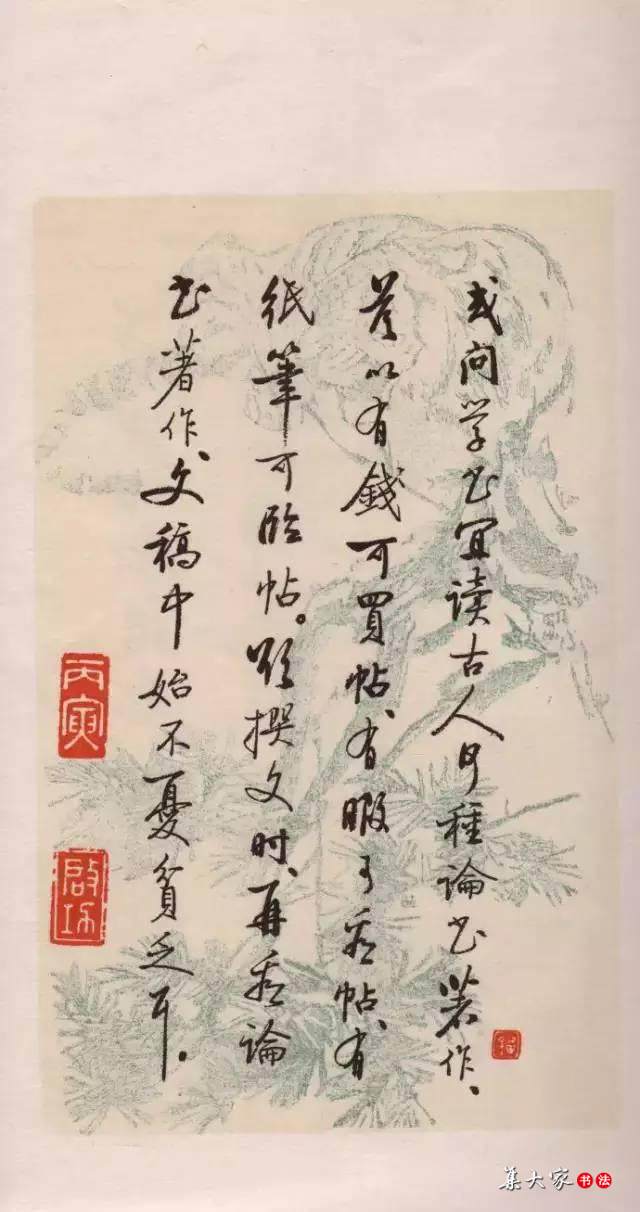 或问学书宜读古人何种論书著作、
答以有錢可買帖、有暇可看帖、有
纸筆可临帖。欲撰文时、再看論
书著作、文稿中始不憂貧乏耳。
丙寅
啟功
集大家书法